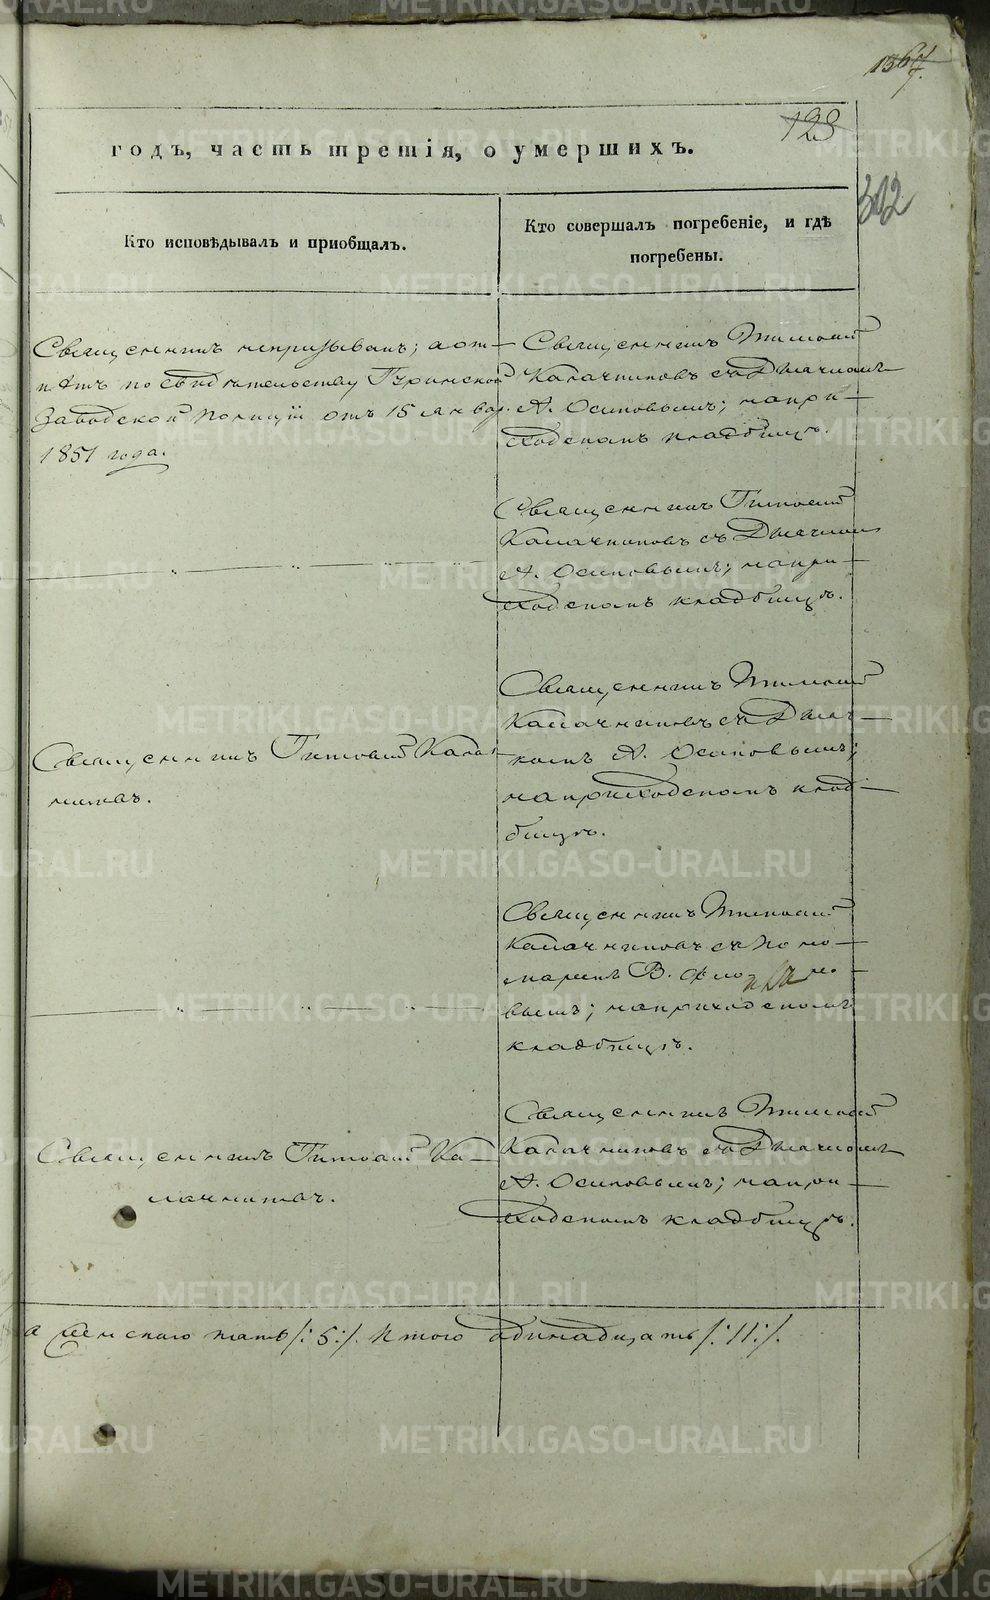 1367/7.
123
302
годъ, часть третія, о умершихъ.
Кто исповѣдывалъ и пріобщалъ.
Кто совершалъ погребеніе, и гдѣ
погребены.
Священникъ непризыванъ; а от-
пѣтъ по свидѣтельству
Заводской полиціи отъ 15 Январ.
1851 года.
Священникъ Тимоѳей
Калачниковъ съ Дьячкомъ
А. Осиповымъ; на при-
ходскомъ кладбищѣ.
Священникъ Тимоѳей
Калачниковъ съ Дьячкомъ
А. Осиповымъ; на при-
ходскомъ кладбищѣ.
Священникъ Тимоѳей Кала-
никовъ.
Священникъ Тимоѳей
Калачниковъ съ Дьяч-
комъ А. Осиповымъ;
на приходскомъ клад-
бищѣ.
Священникъ Тимоѳей
Калачниковъ съ Поно-
маремъ В.
вымъ; на приходскомъ
кладбищѣ.
Священникъ Тимоѳей Ка-
лачниковъ.
Священникъ Тимоѳей
Калачниковъ съ Дьячкомъ
А. Осиповымъ; на при-
ходскомъ кладбищѣ.
а женскаго пять /:5:/. Итого одинадцать /:11:/.
METRIKI.GASO-URAL.RU